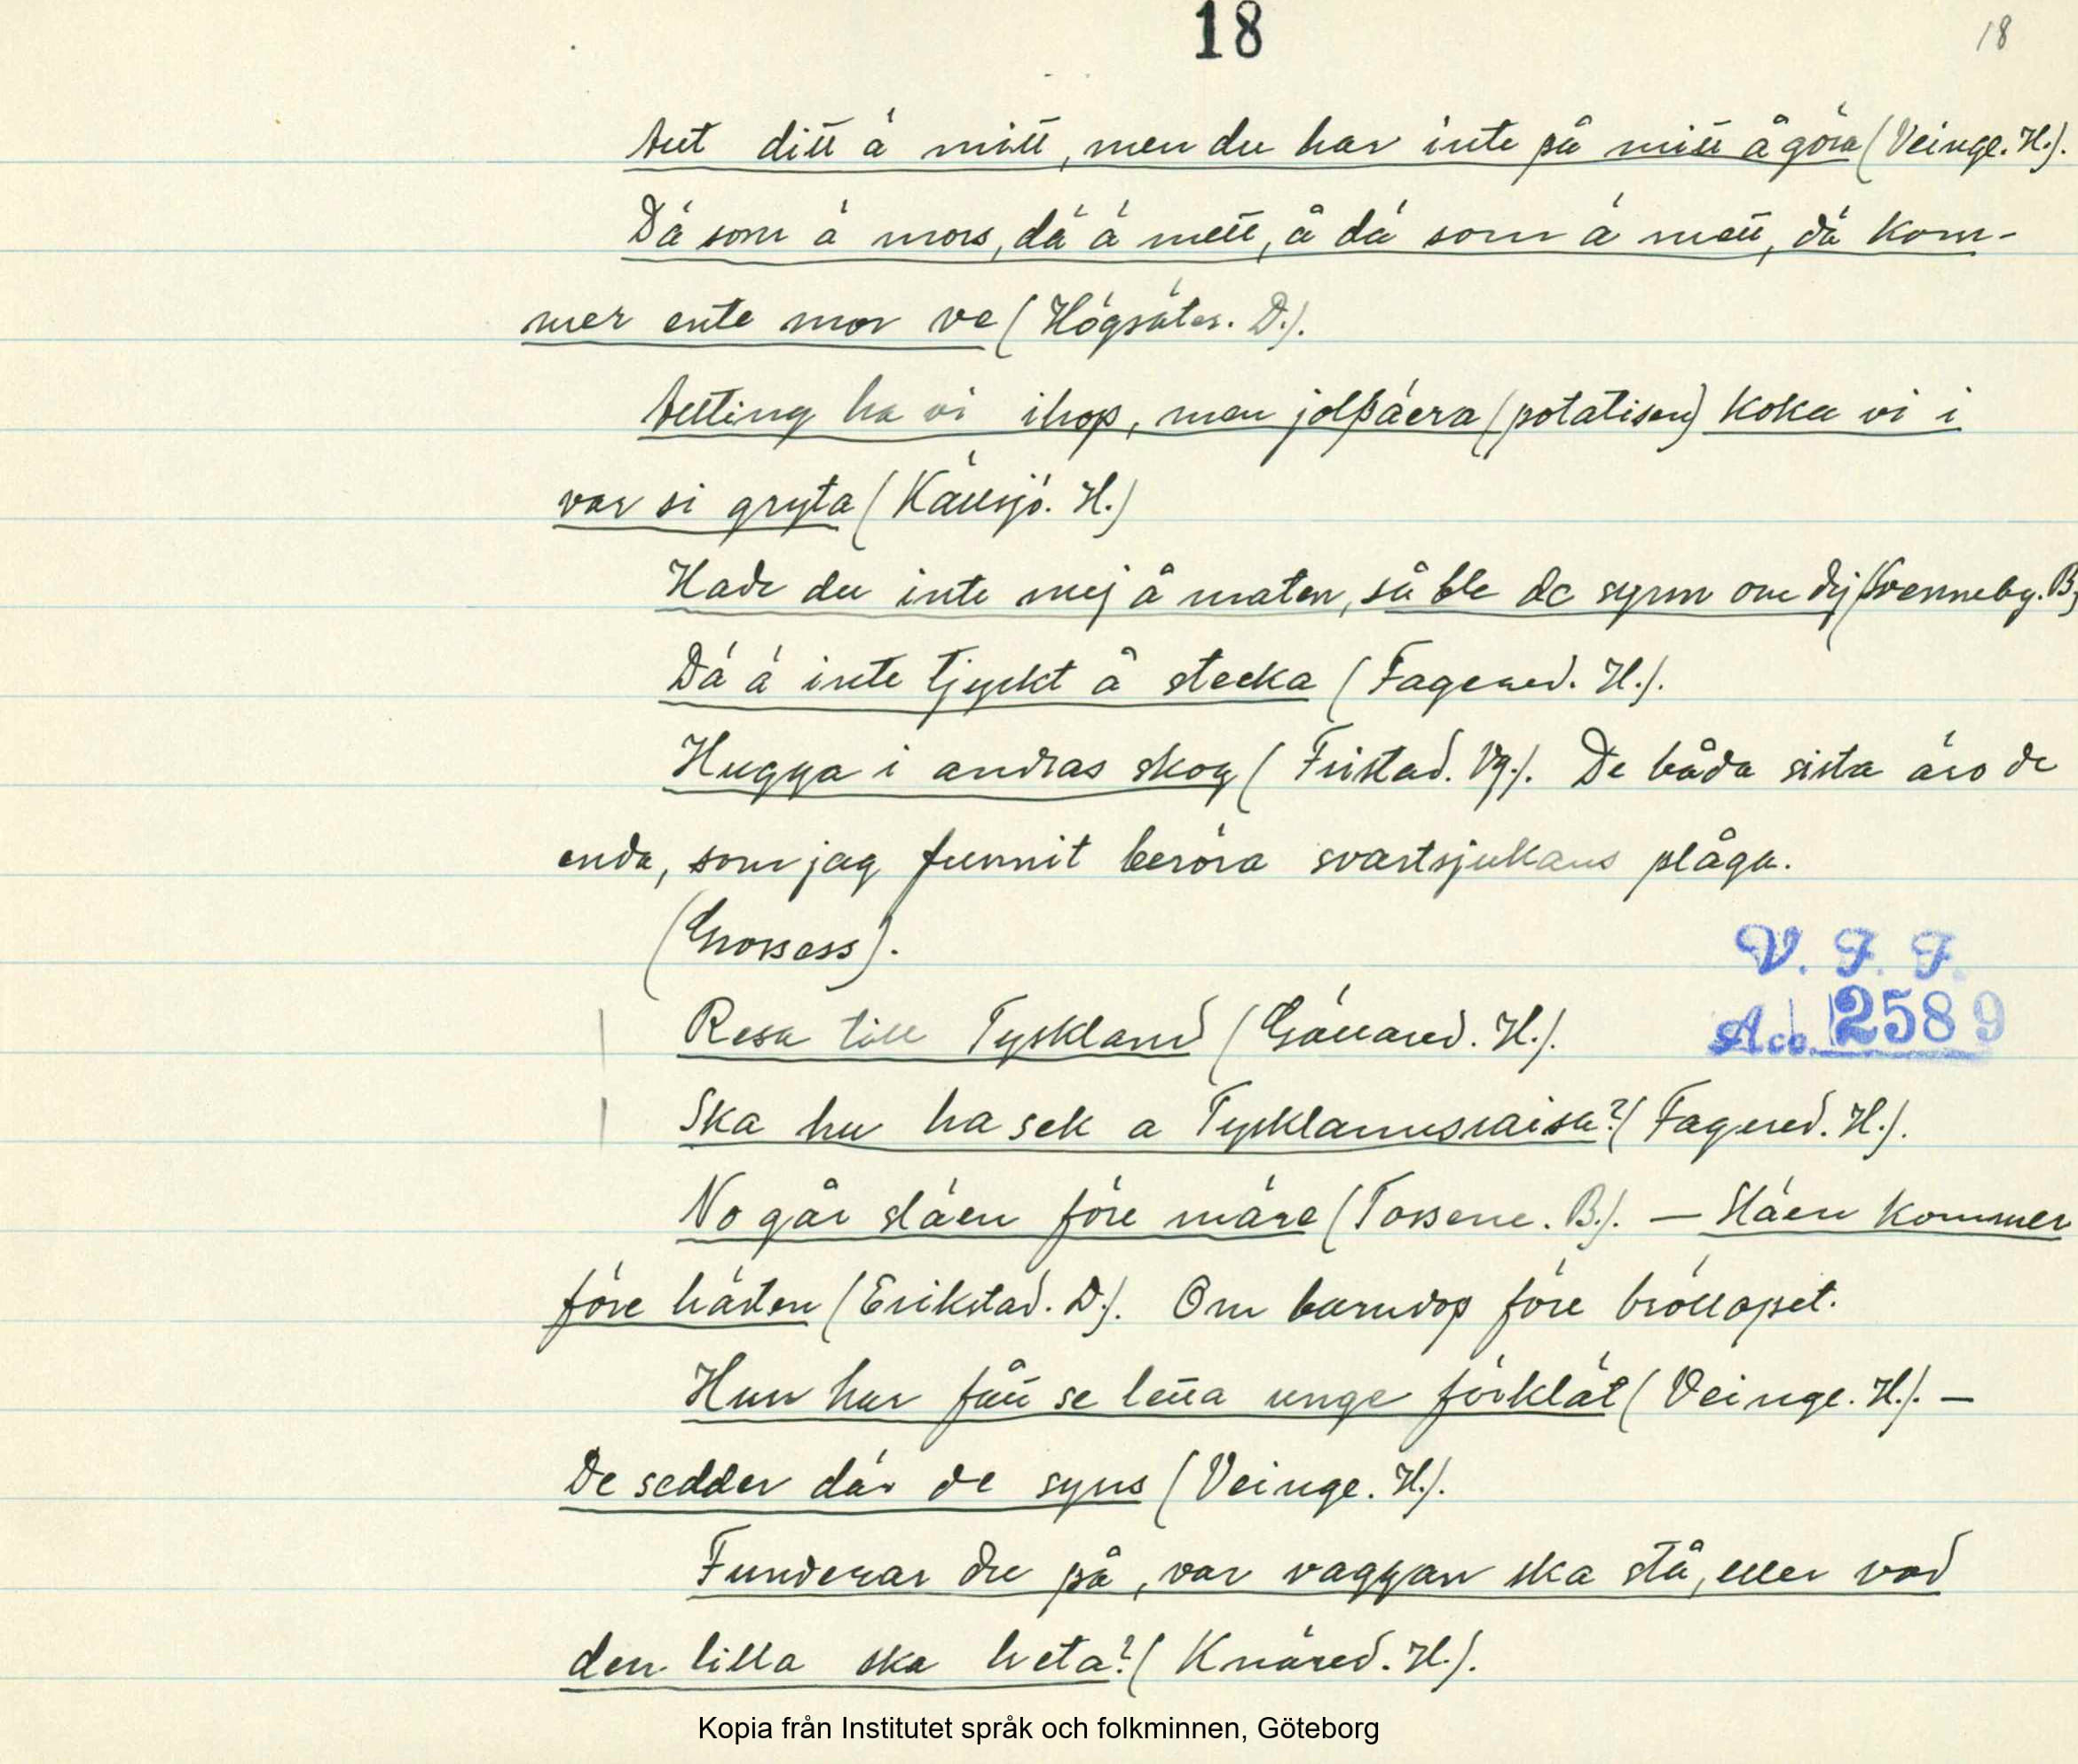 18
18
Aut ditt ä mitt, men du har inte på mitt å göra (Veinge. H.).
Dä som ä mors, dä ä mett, å dä som ä mett, dä kom-
mer ente mor ve (Högsäter. D.).
Allting ha vi ihop, men jolpäera (potatisen) koka vi i
var si gryta (Källsjö. H.)
Hade du inte mej å maten, så ble de synn om dij (Svenneby. B.)
Dä ä inte tjyckt å stecka (Fagered. H.).
Hugga i andras skog (Fristad. Vg.). De båda sista äro de
enda, som jag funnit beröra svartsjukans plåga.
(Grossess).
Resa till Tyskland (Gällared. H.).
Ska hu ha sek a Tysklannsraisa? (Fagered. H.).
No går släen före märe (Tossene. B.). — Släen kommer
före hästen (Erikstad. D.). Om barndop före bröllopet.
Hun har fått se letta unge förklät (Veinge. H.). —
De sedder där de syns (Veinge. H.).
Funderar du på, var vaggan ska stå, eller vad
den lilla ska heta? (Knäred. H.).
V. F. F.
Acc. 2589
Kopia från Institutet språk och folkminnen, Göteborg